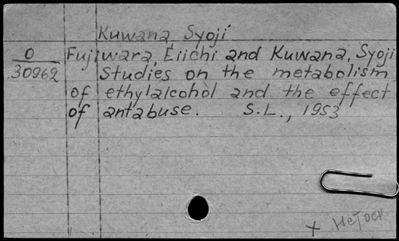 Kuwana Syoji
O Fujiwara, Eiichi and Kuwana, Syoji
30962 Studies on the metabolism
of ethylalcohol and the effect
of antabuse. S.L., 1953
x